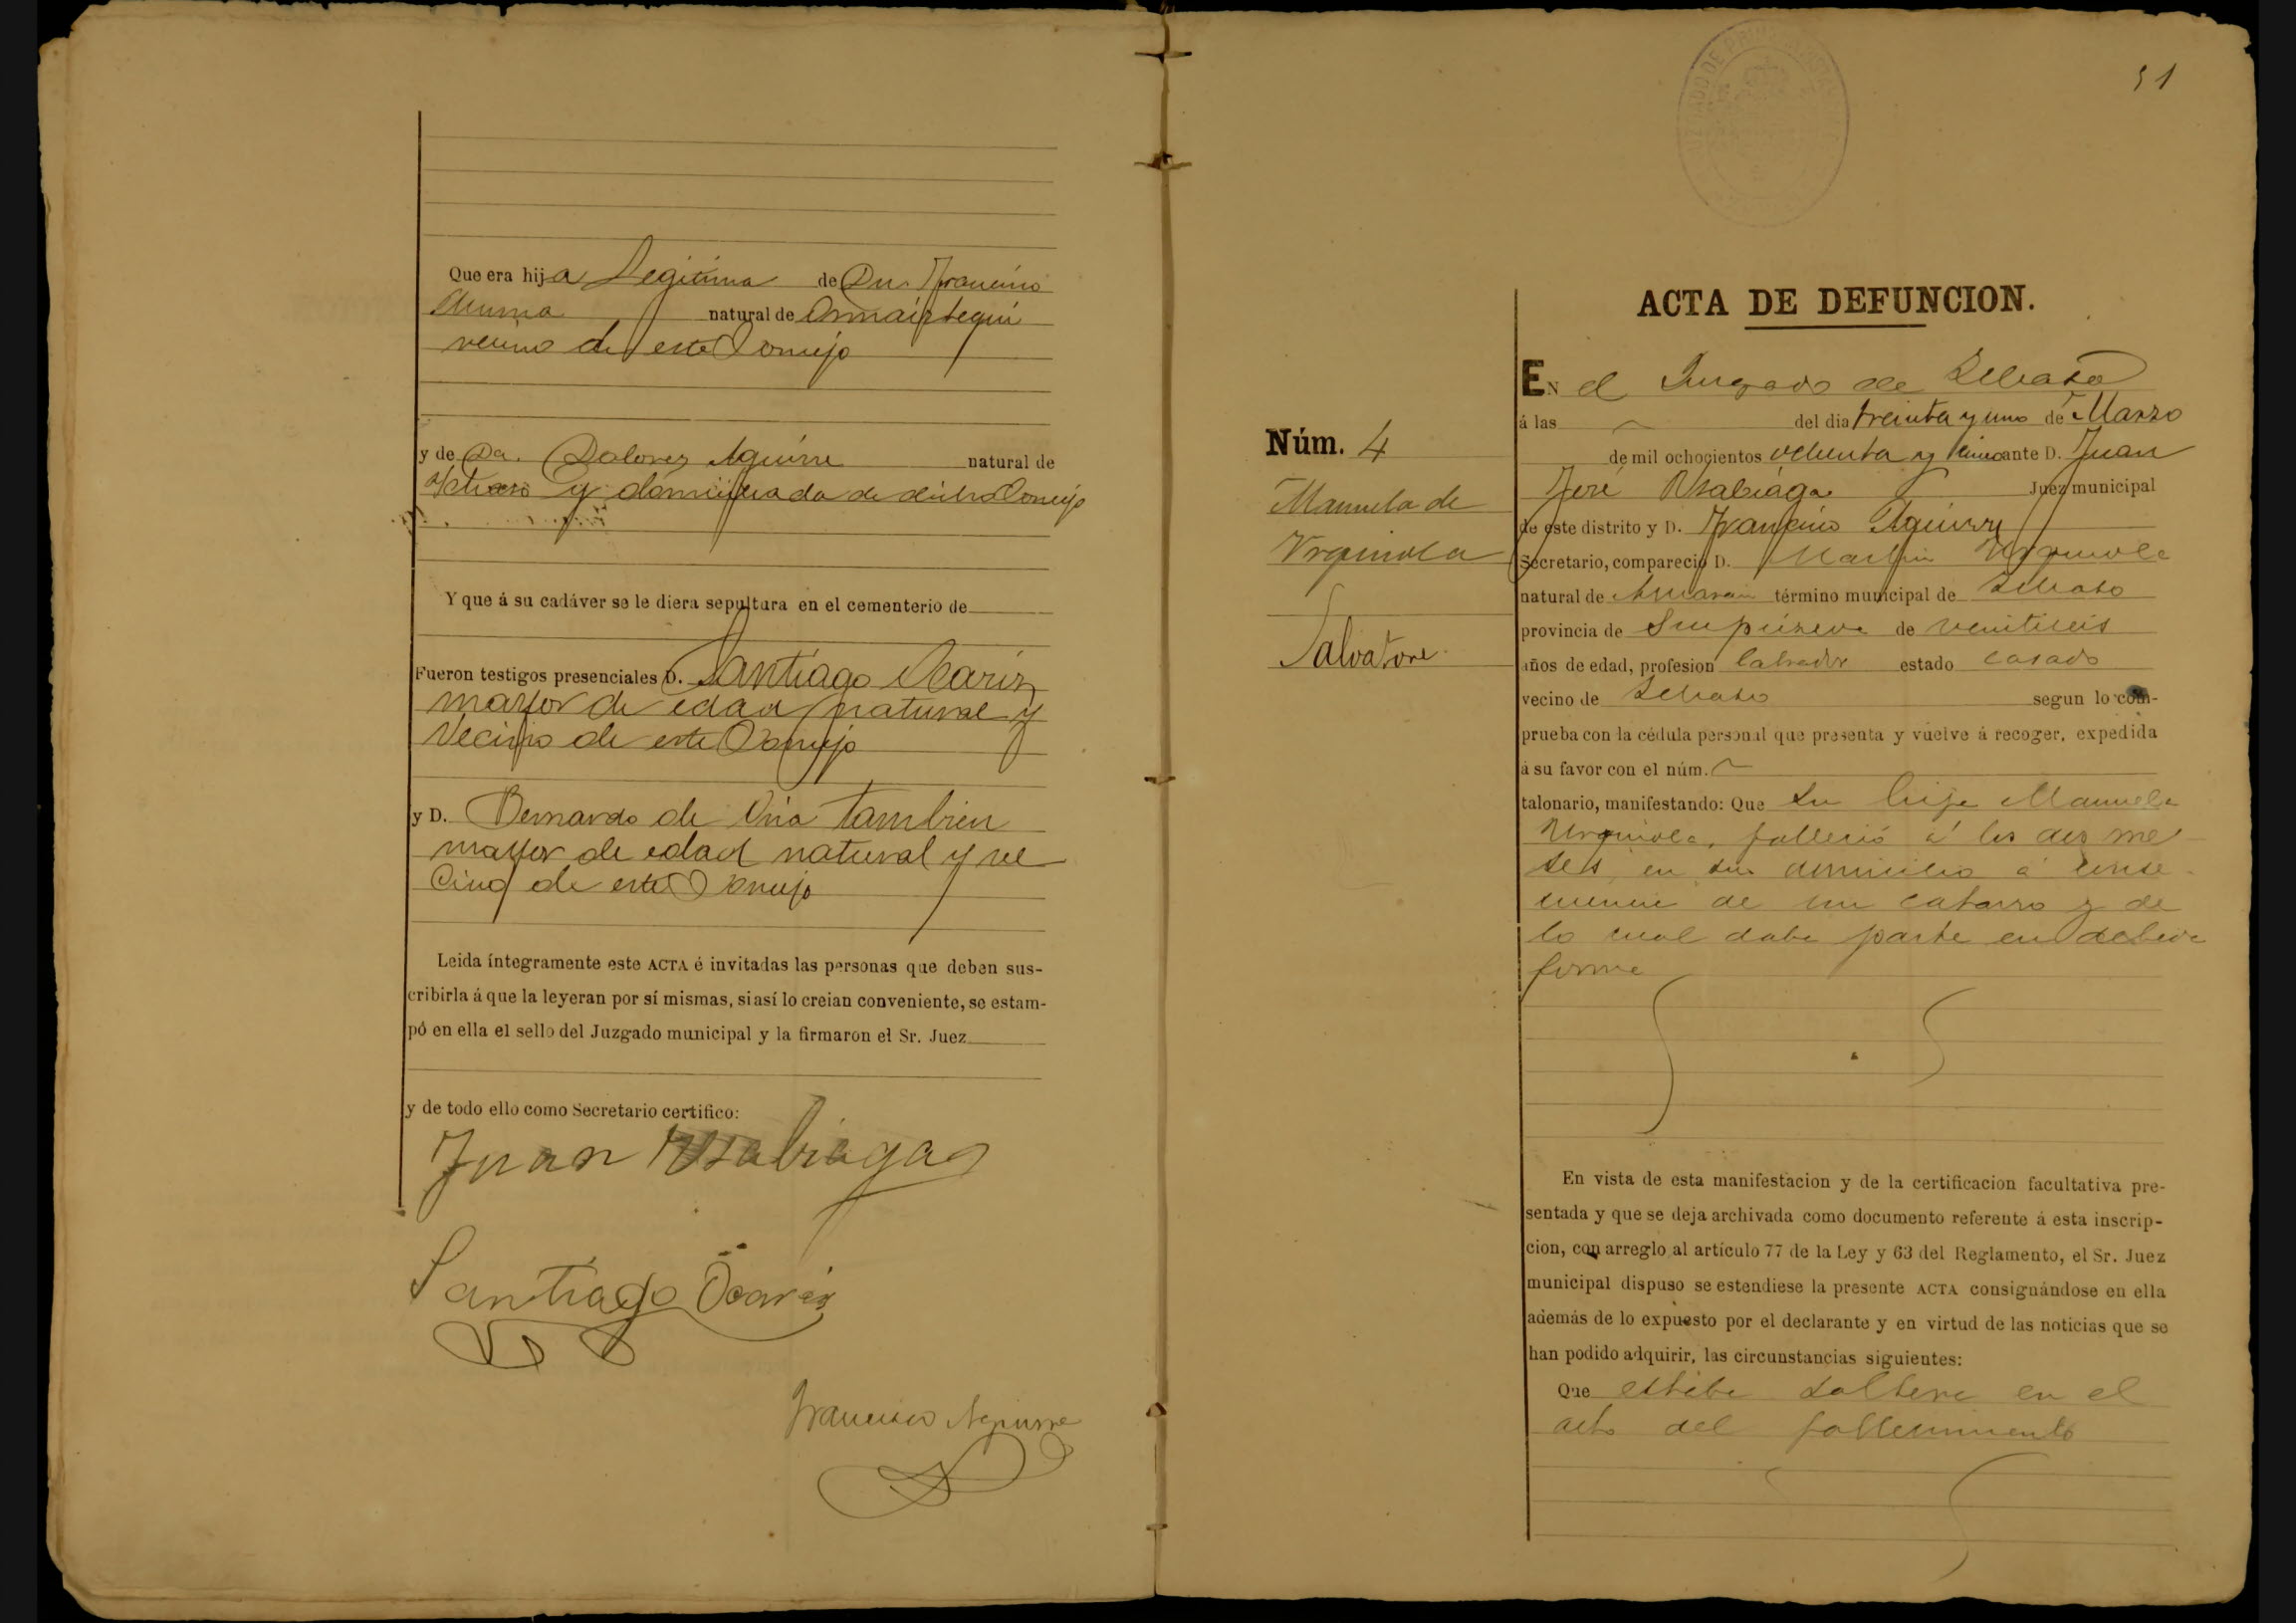 Que era hija Legitima de Dn. Francisco
natural de
vecino de este Concejo
y de Da. Dolores Aguirre natural de
y domiciliada de dicho Concejo
Y que á su cadáver se le diera sepultura en el cementerio de
Fueron testigos presenciales D. Santiago
mayor de edad natural y
vecino de este Concejo
y D. Bernardo de Oria tambien
mayor de edad natural y ve
cino de este Concejo
Leida íntegramente este ACTA é invitadas las personas que deben sus-
cribirla á que la leyeran por sí mismas, si así lo creian conveniente, se estam-
pó en ella el sello del Juzgado municipal y la firmaron el Sr. Juez
y de todo ello como Secretario certifico:
Juan Usabiaga
Santiago
Francisco Aguirre
51
ACTA DE DEFUNCION.
EN el Juzgado de
á las del dia treinta y uno de Marzo
de mil ochocientos ochenta y cinco ante D. Juan
José Usabiaga Juez municipal
de este distrito y D. Francisco Aguirre
Secretario, compareció D. Martin Urquiola
natural de término municipal de
provincia de Guipúzcoa de veintiseis
años de edad, profesion labrador estado casado
vecino de segun lo com-
prueba con la cédula personal que presenta y vuelve á recoger, expedida
á su favor con el núm.
talonario, manifestando: Que su hija Manuela
Urquiola, falleció á los dos me
ses, en su domicilio á conse
cuencia de un catarro y de
lo cual daba parte en debida
forma
Núm. 4
Manuela de
Urquiola
Salvatore
En vista de esta manifestacion y de la certificacion facultativa pre-
sentada y que se deja archivada como documento referente á esta inscrip-
cion, con arreglo al artículo 77 de la Ley y 63 del Reglamento, el Sr. Juez
municipal dispuso se estendiese la presente ACTA consignándose en ella
además de lo expuesto por el declarante y en virtud de las noticias que se
han podido adquirir, las circunstancias siguientes:
Que estaba soltera en el
acto del fallecimiento